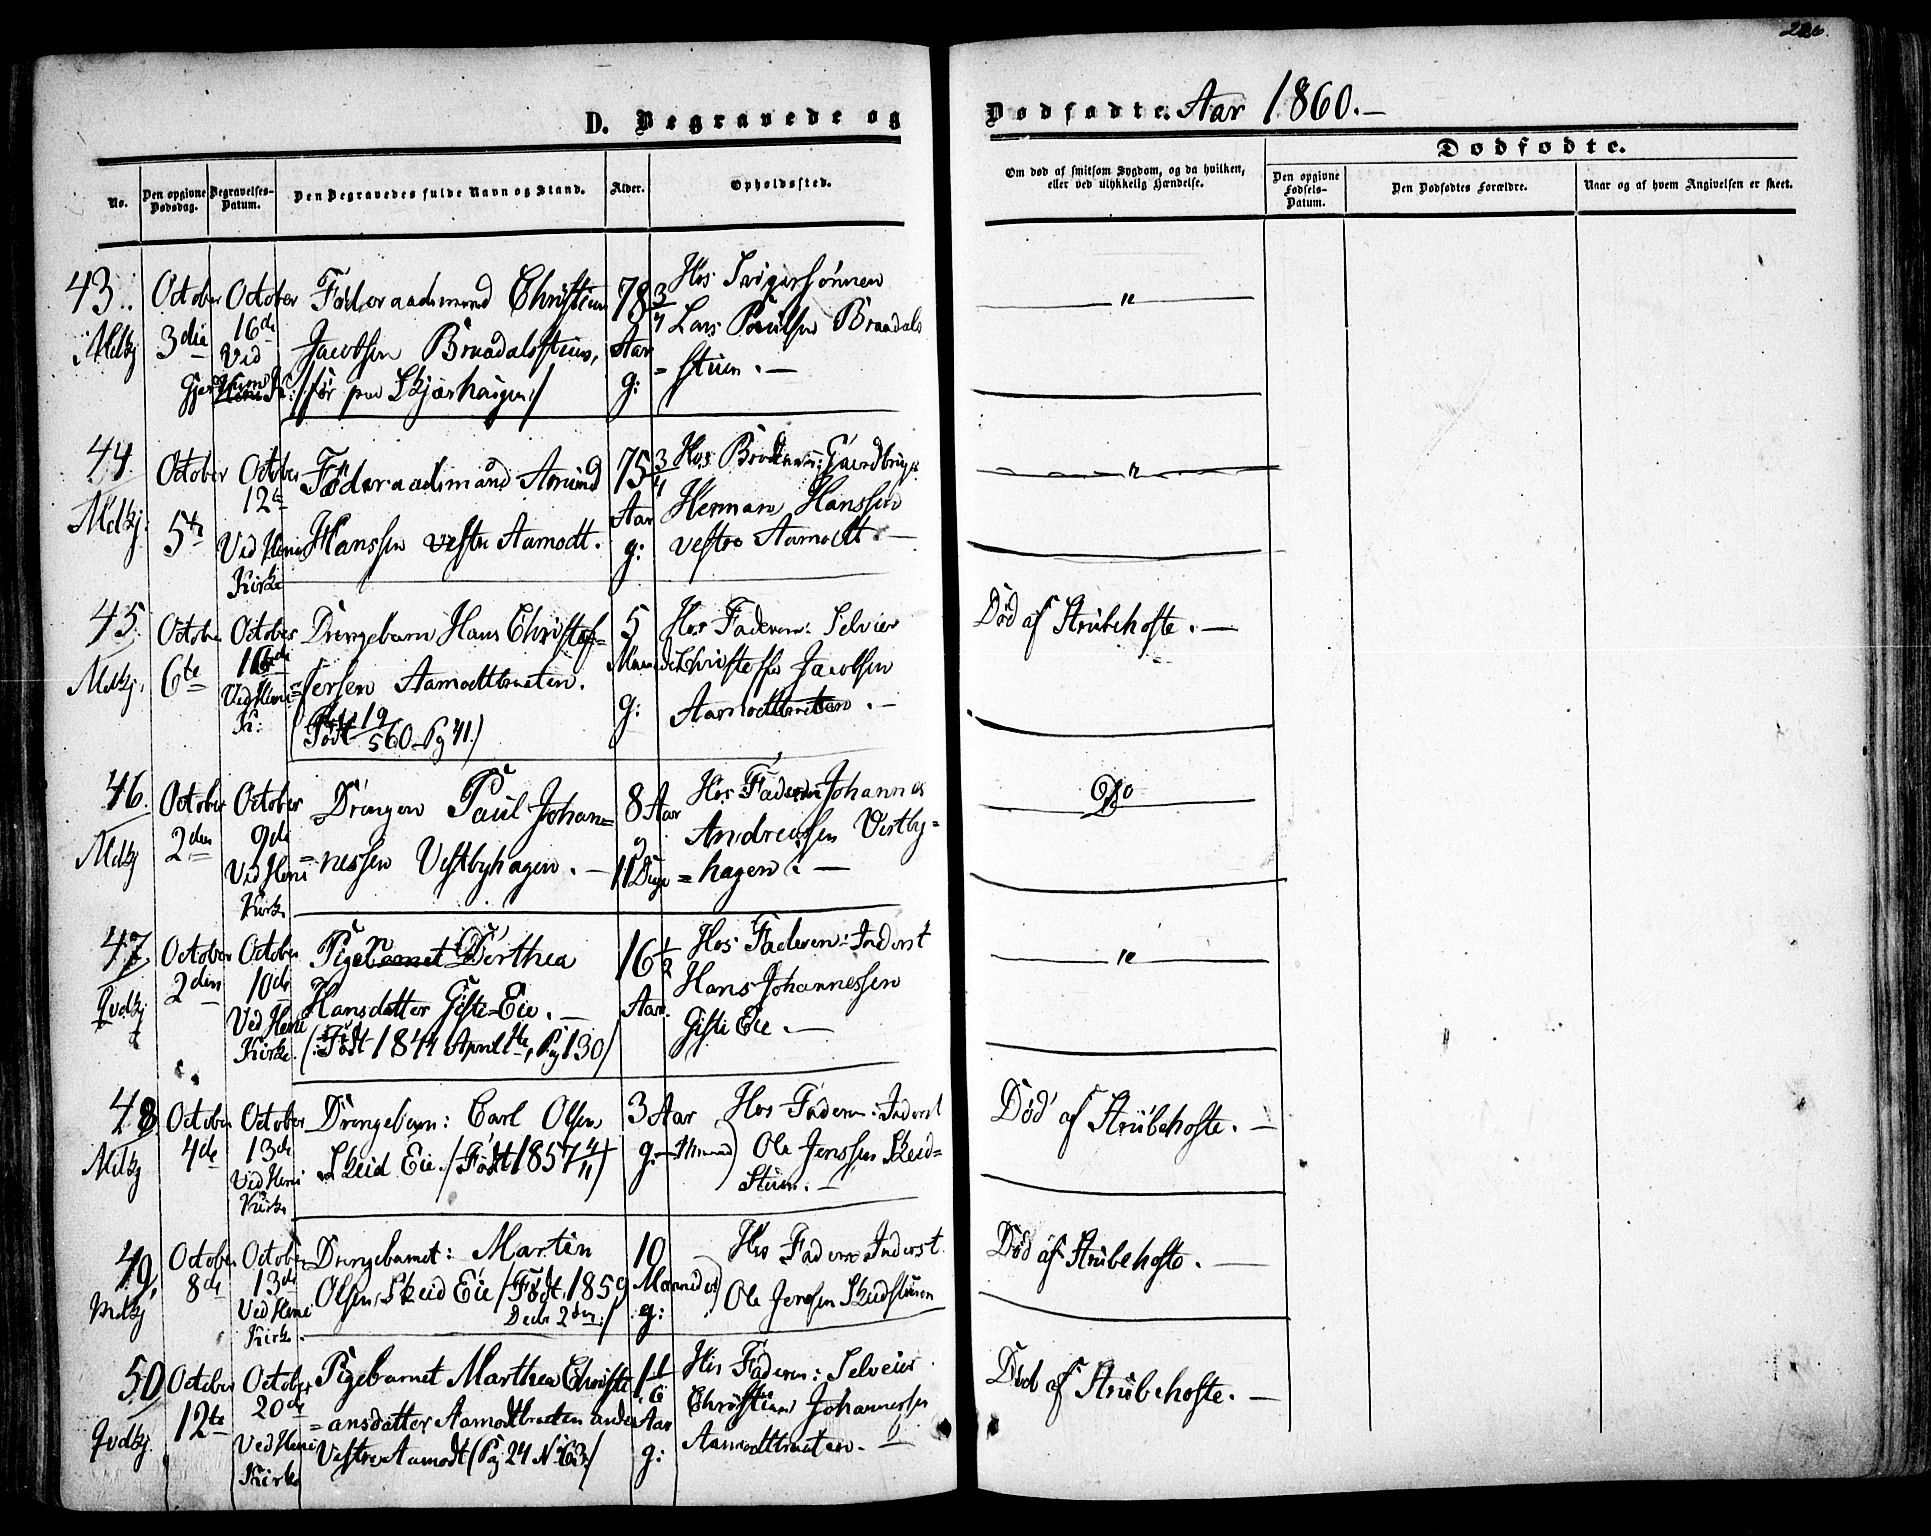 226.
D. Begravede og Dødfødte. Aar 1860.—
No.
Den opgivne Dødsdag.
Begravelses-Datum.
Den Begravedes fulde Navn og Stand.
Alder.
Opholdssted.
Om død af smitsom Sygdom, og da hvilken, eller ved ulykkelig Hændelse.
Dødfødte.
Den opgivne Fødsels-Datum.
Den Dødfødtes Forældre.
Naar og af hvem Angivelsen er skeet.
43.
Mdkj
October
3die
October
16de
Ved
Gjer
Føderaadsmand Christian
Jacobsen Braadalsstuen,
/:før paa Skjærhaugen:/
78 3/4
Aar
g:
Hos Svigersønnen
Lars Paulsen Braadals
=stuen.—
"
44.
Mdkj:
October
5te
October
12te
Ved Heni
Kirke
Føderaadsmand Amund
Hanssen vestre Aamodt.
75 3/4
Aar
g:
Hos Broderen: Gaardbruger
Herman Hanssen
vestre Aamodt.—
"
45.
Mdkj.
October
6te
October
16de
Ved Heni
K:
Drengebarn Hans Christof=
=fersen Aamodtbraaten.
(Født 19/5 60 Pg 41.)
5
Maaneder
g:
Hos Faderen: Selveier
Christoffer Jacobsen
Aamodtbraaten.—
Død af Strubehoste.—
46.
Mdkj
October
2den
October
9de
Ved Heni
Kirke
Drengen Paul Johan=
=nessen Vestbyhagen.—
8 Aar
g
11 Dage
Hos Faderen Johannes
Andreassen Vestby=
=hagen.—
Do
47.
Qvdkj
October
2den
October
10de
Ved Heni
Kirke.
Pigen Dorthea
Hansdatter Giste=Eie.—
(:Født 1844 April 1te, Pg 130/
16 1/2
Aar.
Hos Faderen: Inderst
Hans Johannessen
Giste Eie.—
"
48.
Mdkj
October
4de
October
13de
Ved Heni
Kirke
Drengebarn: Carl Olsen
Skeid Eie. /Født 1857 4/11)
3 Aar
g:
Hos Faderen: Inderst
Ole Jenssen Skeid=
Stuen.—
Død af Strubehoste.—
49.
Mdkj
October
8de
October
13de
Ved Heni
Kirke.
Drengebarnet: Martin
Olsen Skeid Eie /Født 1859
Decbr 2den:/
10
Maaneder
g:
Hos Faderen Inderst
Ole Jenssen Skeidstuen
Død af Strubehoste.—
50
Qvdkj.
October
12te
October
20de
Ved Heni
Kirke
Pigebarnet Marthea Christi
=ansdatter Aamodtbraaten under
Vestre Aamodt (Pg 24 No 63:/
1 1/6
Aar
g:
Hos Faderen: Selveier
Christian Johannessen
Aamodtbraaten.—
Død af Strubehoste.—